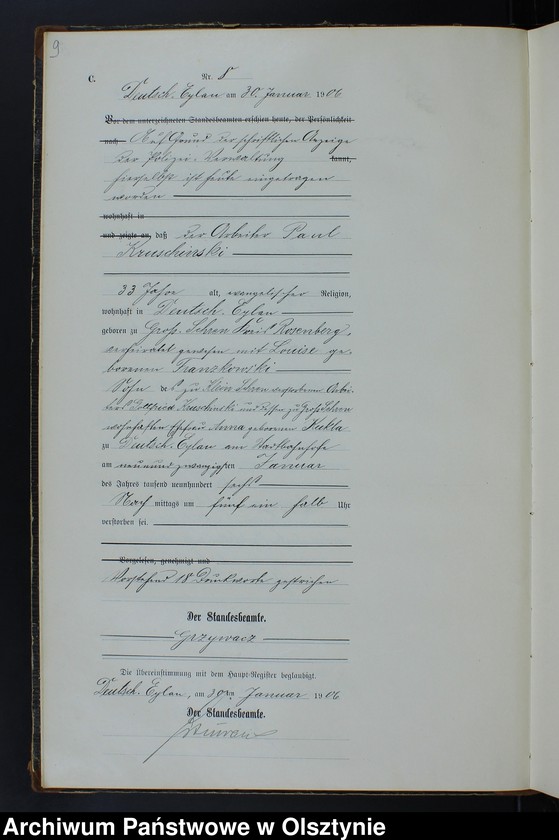 9
C.
Nr. 8
Deutsch-Eylau am 30. Januar 1906
Vor dem unterzeichneten Standesbeamten erschien heute, der Persönlichkeit
nach, Auf Grund der schriftlichen Anzeige
der Polizei-Verwaltung kannt,
hierselbst ist heute eingetragen
worden
wohnhaft in
und zeigte an, daß der Arbeiter Paul
Kruschinski
33 Jahre alt, evangelischer Religion,
wohnhaft in Deutsch-Eylau
geboren zu Groß Sehren Kreis Rosenberg,
verheiratet gewesen mit Louise ge-
borenen Franzkowski
Sohn des zu Klein Sehren verstorbenen Arbei-
ters Gottfried Kruschinski und dessen zu Groß Sehren
wohnhaften Ehefrau Anna geborenen Kukla
zu Deutsch-Eylau am Stadtbahnhofe
am neunundzwanzigsten Januar
des Jahres tausend neunhundert sechs
Nach mittags um fünf ein halb Uhr
verstorben sei.
Vorgelesen, genehmigt und
Vorstehend 18 Druckworte gestrichen
Der Standesbeamte.
Grzywacz
Die Übereinstimmung mit dem Haupt-Register beglaubigt.
Deutsch-Eylau, am 30ten Januar 1906
Der Standesbeamte.
Archiwum Państwowe w Olsztynie